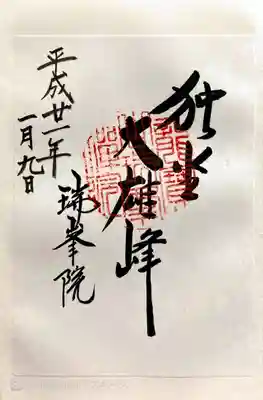 独坐
大雄峰
瑞峯院
平成廿一年
一月九日